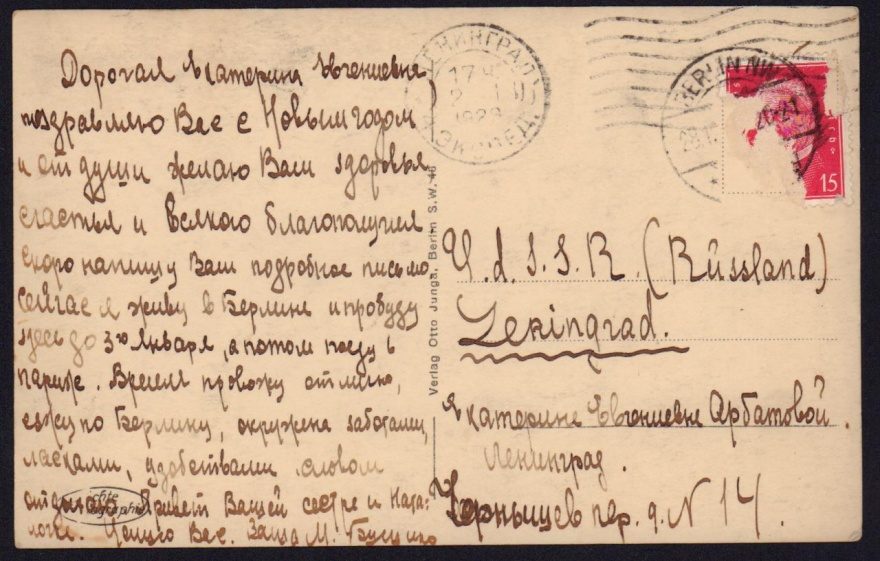 Дорогая Екатерина Евгениевна
поздравляю Вас с Новым годом
и от души желаю Вам здоровья
счастья и всякого благополучия
скоро напишу Вам подробное письмо
сейчас я живу в Берлине и пробуду
здесь до 3го Января, а потом поеду в
Париж. Время провожу отлично,
езжу по Берлину, окружена заботами,
ласками, удобствами словом
отдыхаю. Привет Вашей сестре и Ната-
Целую Вас. Ваша М.
Verlag Otto Junga, Berlin S.W. 48
ЛЕНИНГРАД
17
2 1
1929
ЭКСПЕД.
BERLIN NW
20-21
15
U.d.S.S.R. (Rüssland)
Leningrad.
Екатерине Евгениевне Арбатовой.
Ленинград.
Чернышев пер. д. N 14.